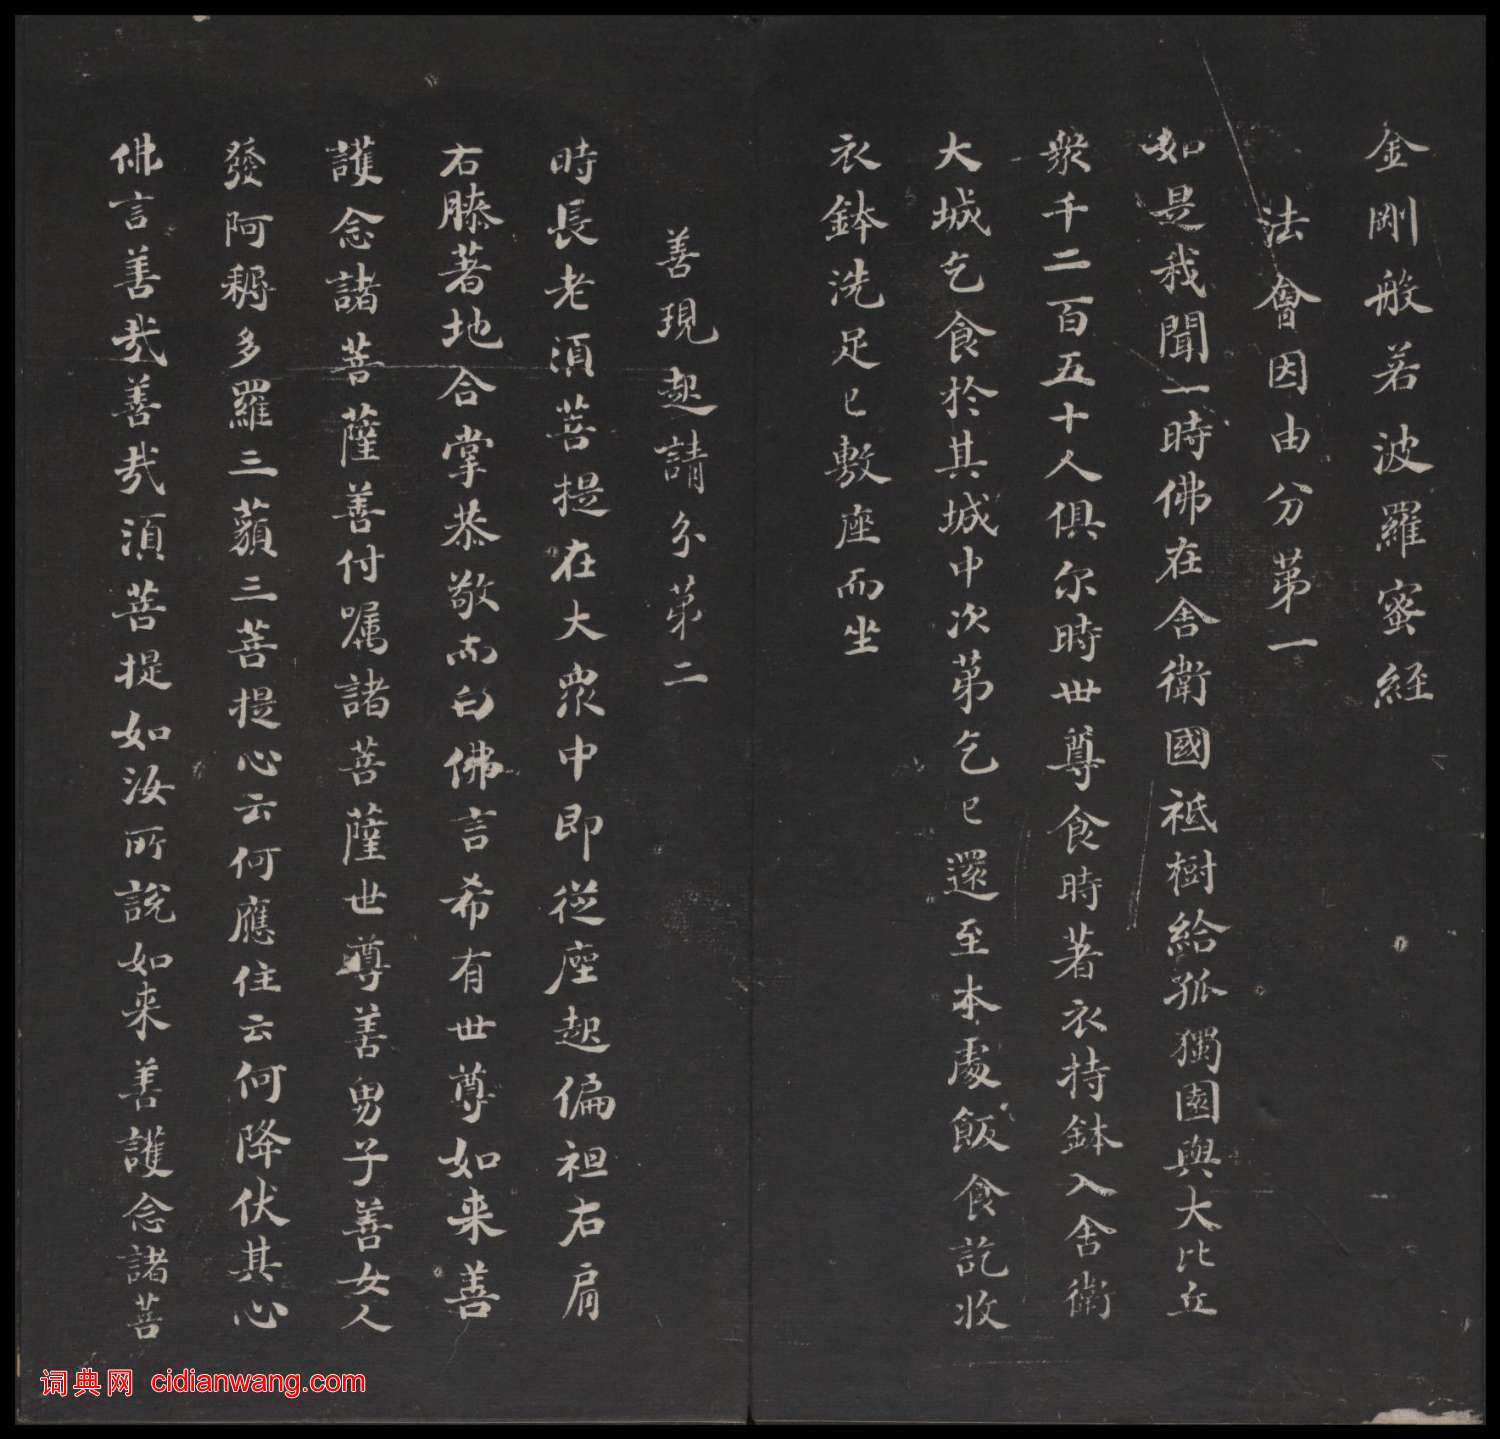 金剛般若波羅蜜経
法會因由分第一
如是我聞一時佛在舎衛國祗樹給孤獨園與大比丘
衆千二百五十人俱尔時世尊食時著衣持鉢入舎衛
大城乞食於其城中次第乞已還至本處飯食訖收
衣鉢洗足已敷座而坐
善現起請分第二
時長老湏菩提在大眾中即從座起偏袒右肩
右膝著地合掌恭敬而白佛言希有世尊如来善
護念諸菩薩善付嘱諸菩薩世尊善男子善女人
發阿耨多羅三藐三菩提心云何應住云何降伏其心
佛言善哉善哉湏菩提如汝所說如来善護念諸菩
词典网 cidianwang.com